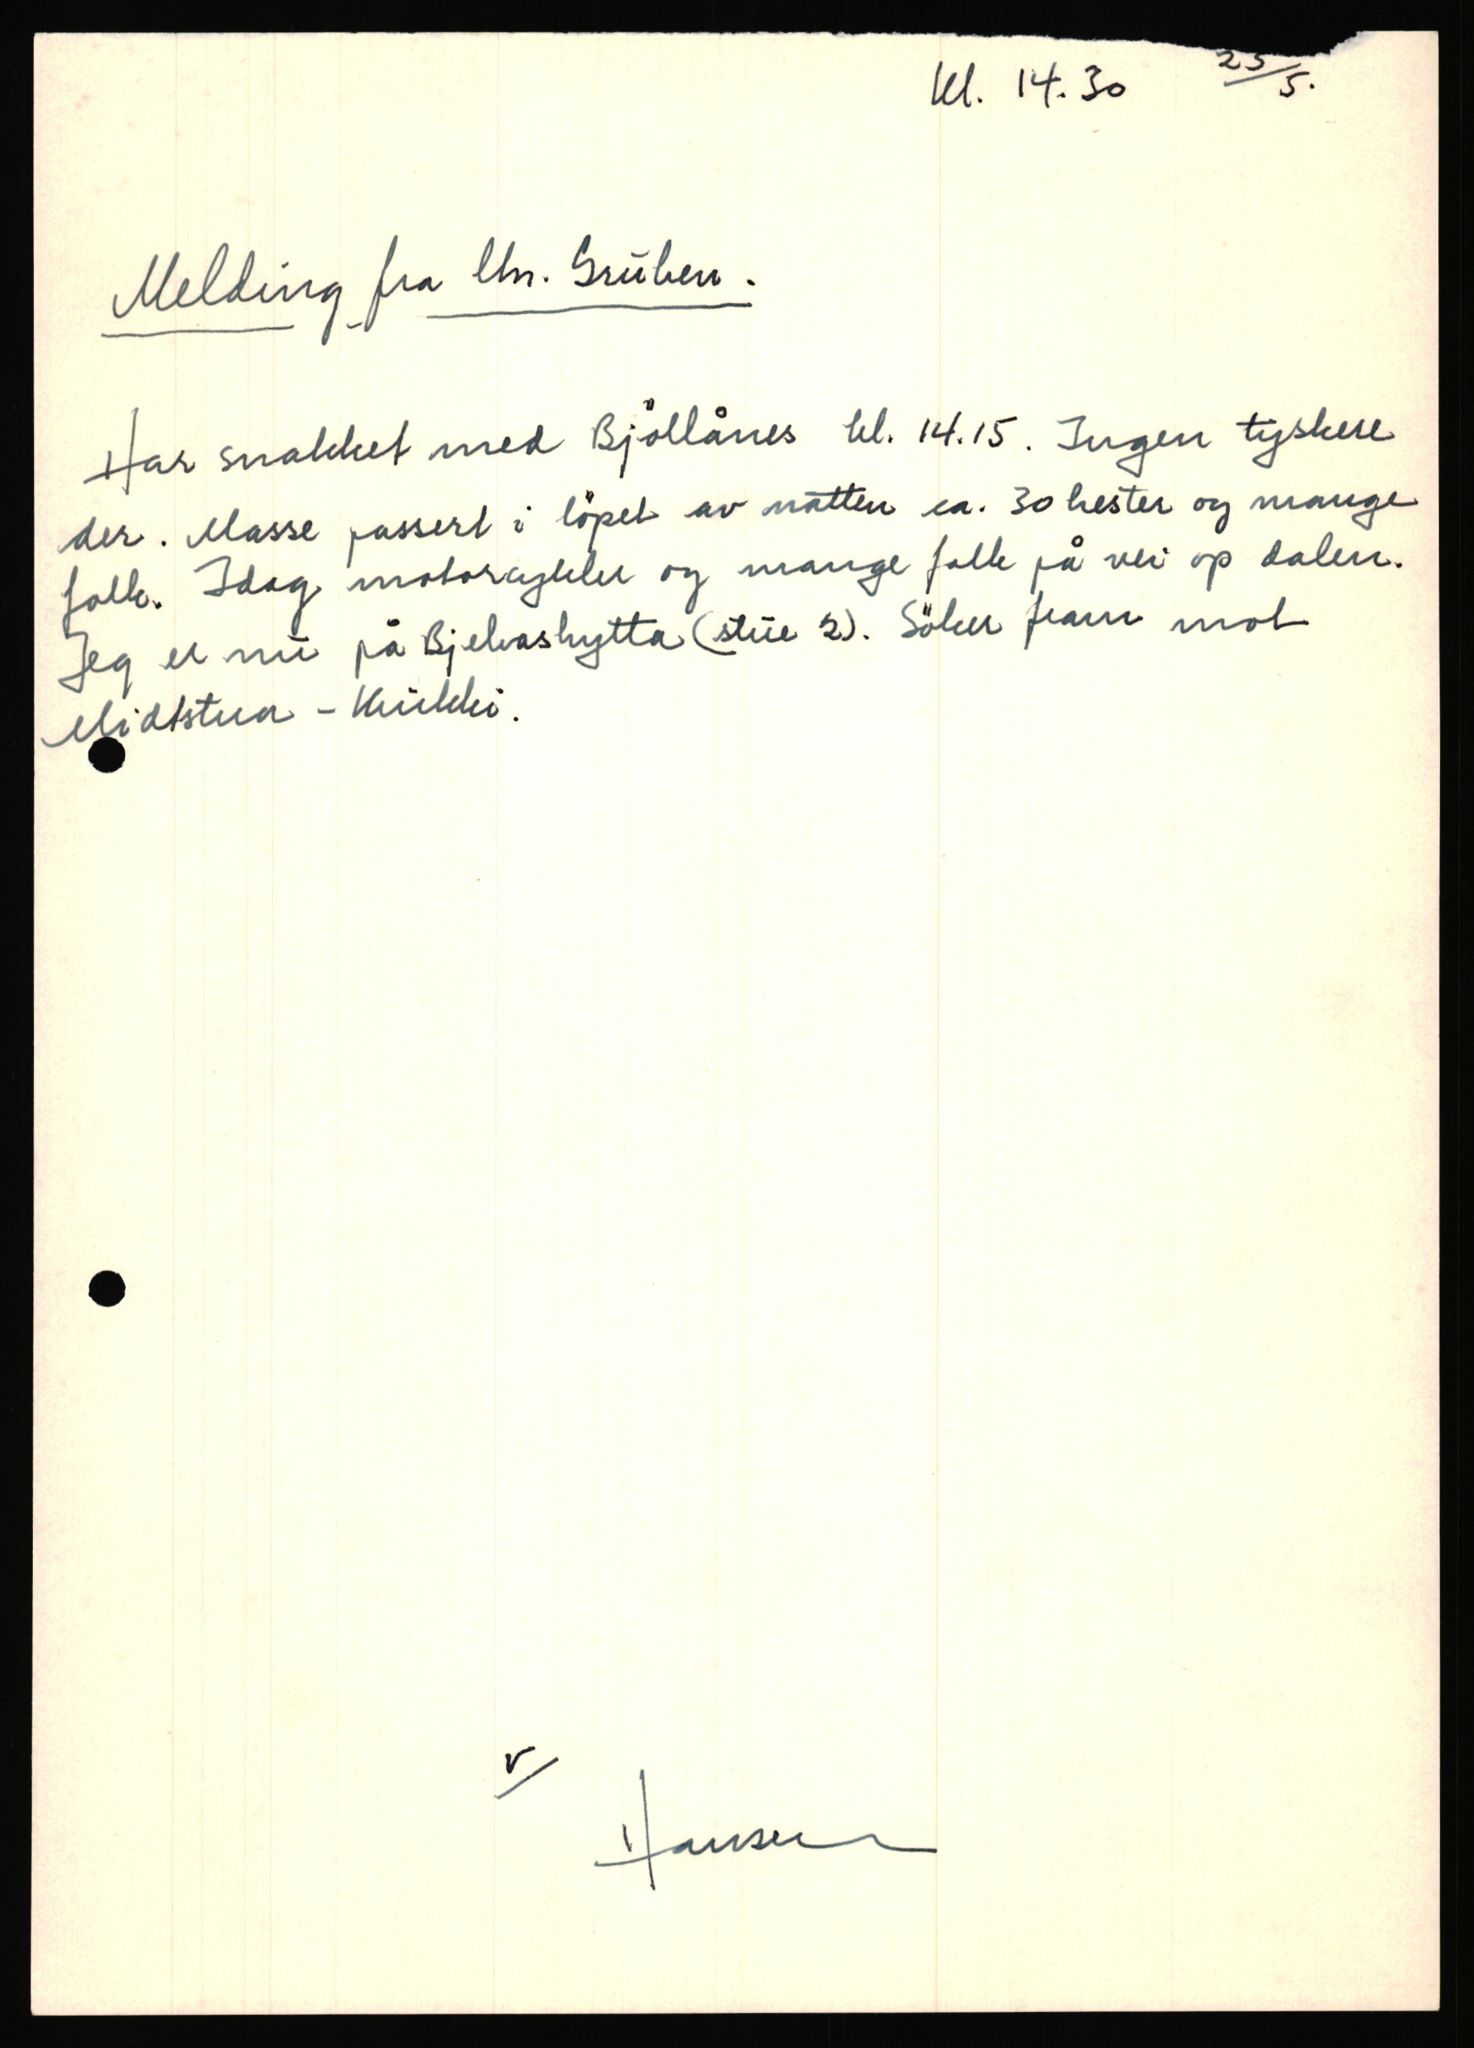 kl. 14.30 25/5.
Melding fra Chr. Gruben.
Har snakket med Bjöllånes kl. 14.15. Ingen tyskere
der. Masse passert i löpet av natten ca. 30 hester og mange
folk. Idag motorcykler og mange folk på vei op dalen.
Jeg er nu på Bjelvashytta (stue 2). Söker fram mot
Midtstua - Krukki.
v/
Hansen